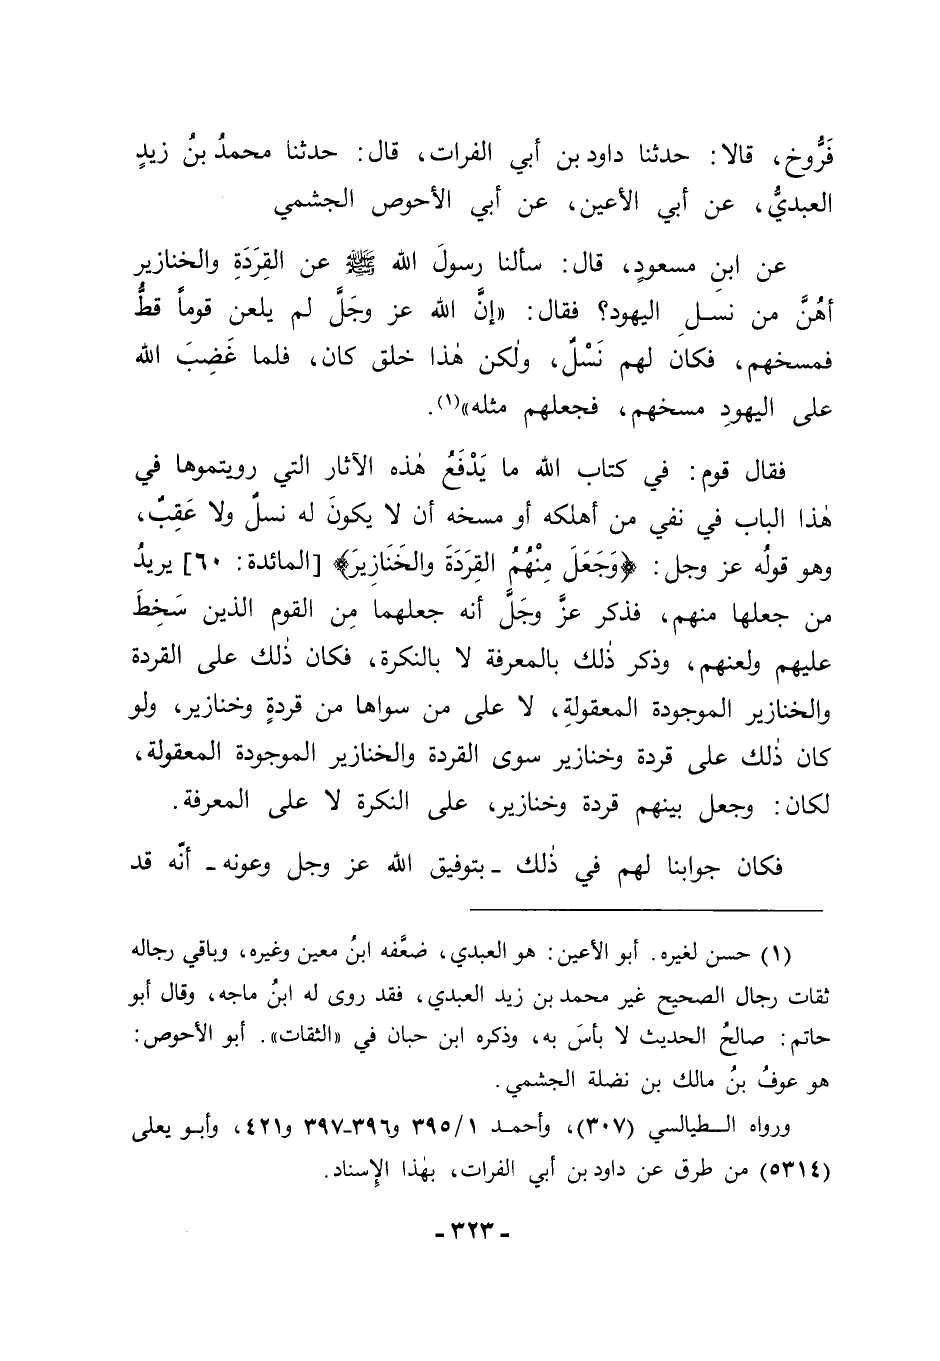 فَرُّوخ، قالا: حدثنا داود بن أبي الفرات، قال: حدثنا محمدُ بنُ زيدٍ
العبديُّ، عن أبي الأعين، عن أبي الأحوص الجشمي
عن ابنِ مسعودٍ، قال: سألنا رسولَ الله ﷺ عن القِرَدَةِ والخنازير
أهُنَّ من نسلِ اليهود؟ فقال: «إنَّ الله عز وجَلَّ لم يلعن قوماً قطُّ
فمسخهم، فكان لهم نَسْلٌ، ولٰكن هٰذا خلق كان، فلما غَضِبَ الله
على اليهودِ مسخهم، فجعلهم مثله»(١).
فقال قوم: في كتاب الله ما يَدْفَعُ هٰذه الآثار التي رويتموها في
هٰذا الباب في نفي من أهلكه أو مسخه أن لا يكونَ له نسلٌ ولا عَقِبٌ،
وهو قولُه عز وجل: ﴿وَجَعَلَ مِنْهُمُ القِرَدَةَ والخَنَازِيرَ﴾ [المائدة: ٦٠] يريدُ
من جعلها منهم، فذكر عزَّ وجَلَّ أنه جعلهما مِن القوم الذين سَخِطَ
عليهم ولعنهم، وذكر ذٰلك بالمعرفة لا بالنكرة، فكان ذٰلك على القردة
والخنازير الموجودة المعقولةِ، لا على من سواها من قردةٍ وخنازير، ولو
كان ذٰلك على قردة وخنازير سوى القردة والخنازير الموجودة المعقولة،
لكان: وجعل بينهم قردة وخنازير، على النكرة لا على المعرفة.
فكان جوابنا لهم في ذٰلك ـ بتوفيق الله عز وجل وعونه ـ أنَّه قد
(١) حسن لغيره. أبو الأعين: هو العبدي، ضعَّفه ابنُ معين وغيره، وباقي رجاله
ثقات رجال الصحيح غير محمد بن زيد العبدي، فقد روى له ابنُ ماجه، وقال أبو
حاتم: صالحُ الحديث لا بأسَ به، وذكره ابن حبان في «الثقات». أبو الأحوص:
هو عوفُ بنُ مالك بن نضلة الجشمي.
ورواه الطيالسي (٣٠٧)، وأحمد ٣٩٥/١ و٣٩٦-٣٩٧ و٤٢١، وأبو يعلى
(٥٣١٤) من طرق عن داود بن أبي الفرات، بهٰذا الإِسناد.
- ٣٢٣ -